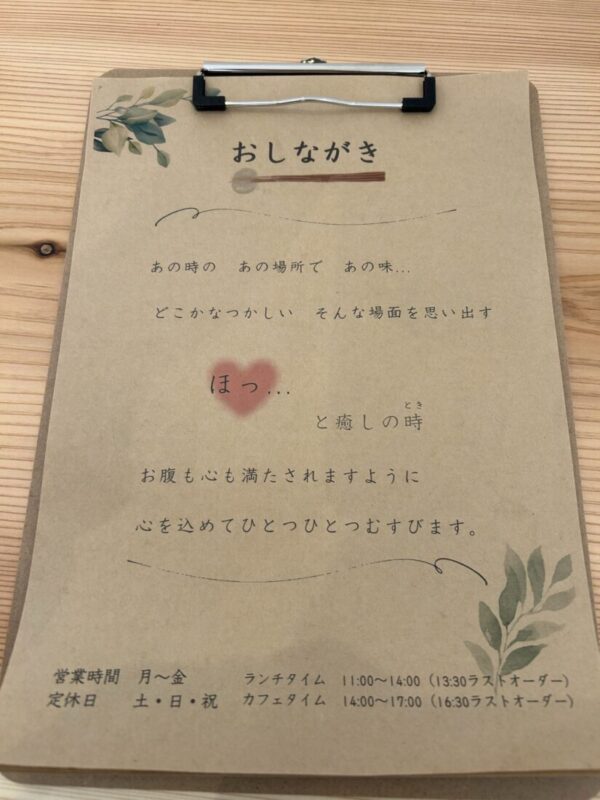 おしながき
あの時の　あの場所で　あの味...
どこかなつかしい　そんな場面を思い出す
ほっ...
と癒しの時
とき
お腹も心も満たされますように
心を込めてひとつひとつむすびます。
営業時間　月〜金　ランチタイム　11:00〜14:00（13:30ラストオーダー）
定休日　土・日・祝　カフェタイム　14:00〜17:00（16:30ラストオーダー）